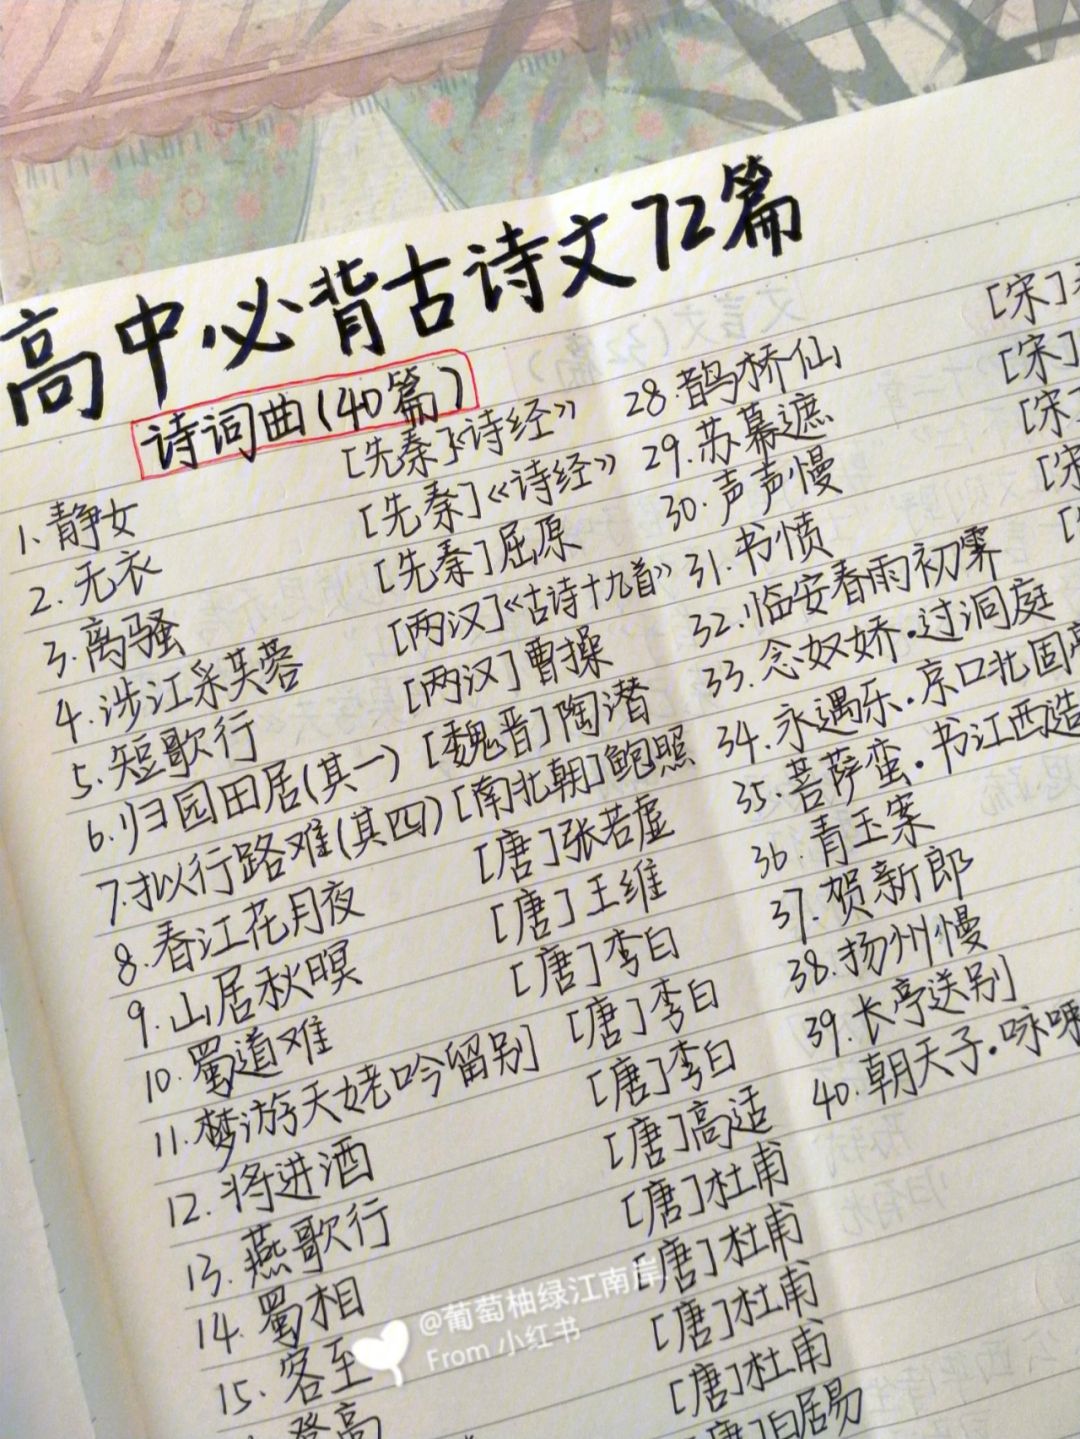 高中必背古诗文72篇
诗词曲(40篇)
1.静女 [先秦]《诗经》
2.无衣 [先秦]《诗经》
3.离骚 [先秦]屈原
4.涉江采芙蓉 [两汉]《古诗十九首》
5.短歌行 [两汉]曹操
6.归园田居(其一) [魏晋]陶潜
7.拟行路难(其四) [南北朝]鲍照
8.春江花月夜 [唐]张若虚
9.山居秋暝 [唐]王维
10.蜀道难 [唐]李白
11.梦游天姥吟留别 [唐]李白
12.将进酒 [唐]李白
13.燕歌行 [唐]高适
14.蜀相 [唐]杜甫
15.客至 [唐]杜甫
登高 [唐]杜甫
[唐]杜甫
[唐]白居易
28.鹊桥仙 [宋]
29.苏幕遮 [宋]
30.声声慢 [宋]
31.书愤 [宋
32.临安春雨初霁
33.念奴娇·过洞庭
34.永遇乐·京口北固亭
35.菩萨蛮·书江西造
36.青玉案
37.贺新郎
38.扬州慢
39.长亭送别
40.朝天子·咏喇
@葡萄柚绿江南岸
From 小红书